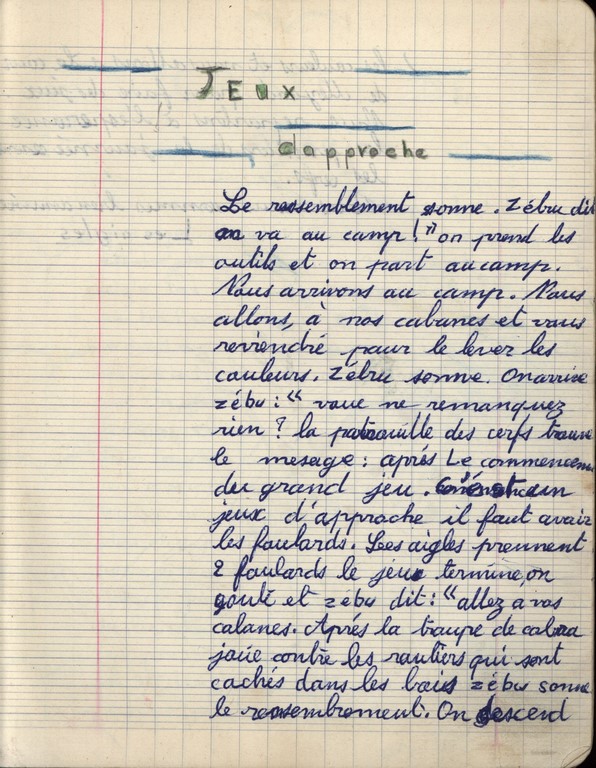 JEUX
dapproche
Le rassemblement sonne. Zébu dit
on va au camp!" on prend les
outils et on part au camp.
Nous arrivons au camp. Nous
allons, à nos cabanes et vous
reviendré pour le lever les
couleurs. Zébu sonne. On arrive
zébu : " vous ne remanquez
rien ? la patrouille des cerfs trouve
le mesage : aprés Le commencem
du grand jeu. C'est un
jeux d'approche il faut avoir
les foulards. Les aigles prennent
2 foulards le jeu termine, on
gouté et zébu dit : "allez a vos
cabanes. Aprés la troupe de
joue contre les routiers qui sont
cachés dans les bois zébu sonne
le On descend